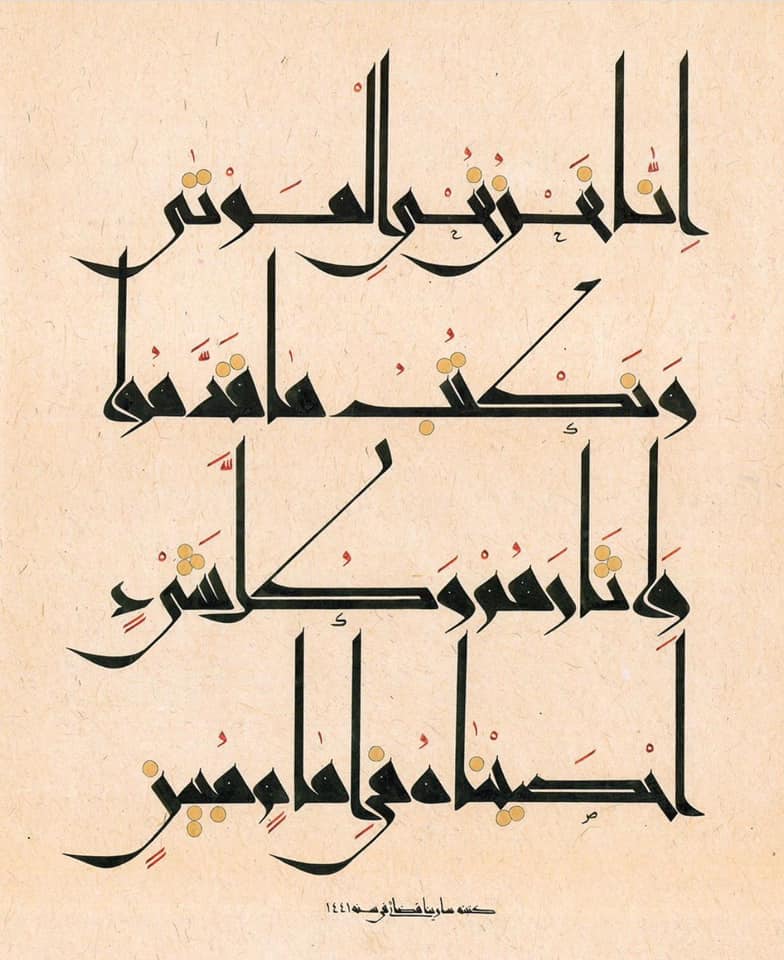 اِنَّا نَحْنُ نُحْيِ الْمَوْتٰى
وَنَكْتُبُ مَا قَدَّمُوا
وَاٰثَارَهُمْ وَكُلَّ شَيْءٍ
اَحْصَيْنَاهُ فِي اِمَامٍ مُبِينٍ
كتبته سارينا في سنه ١٤٤١